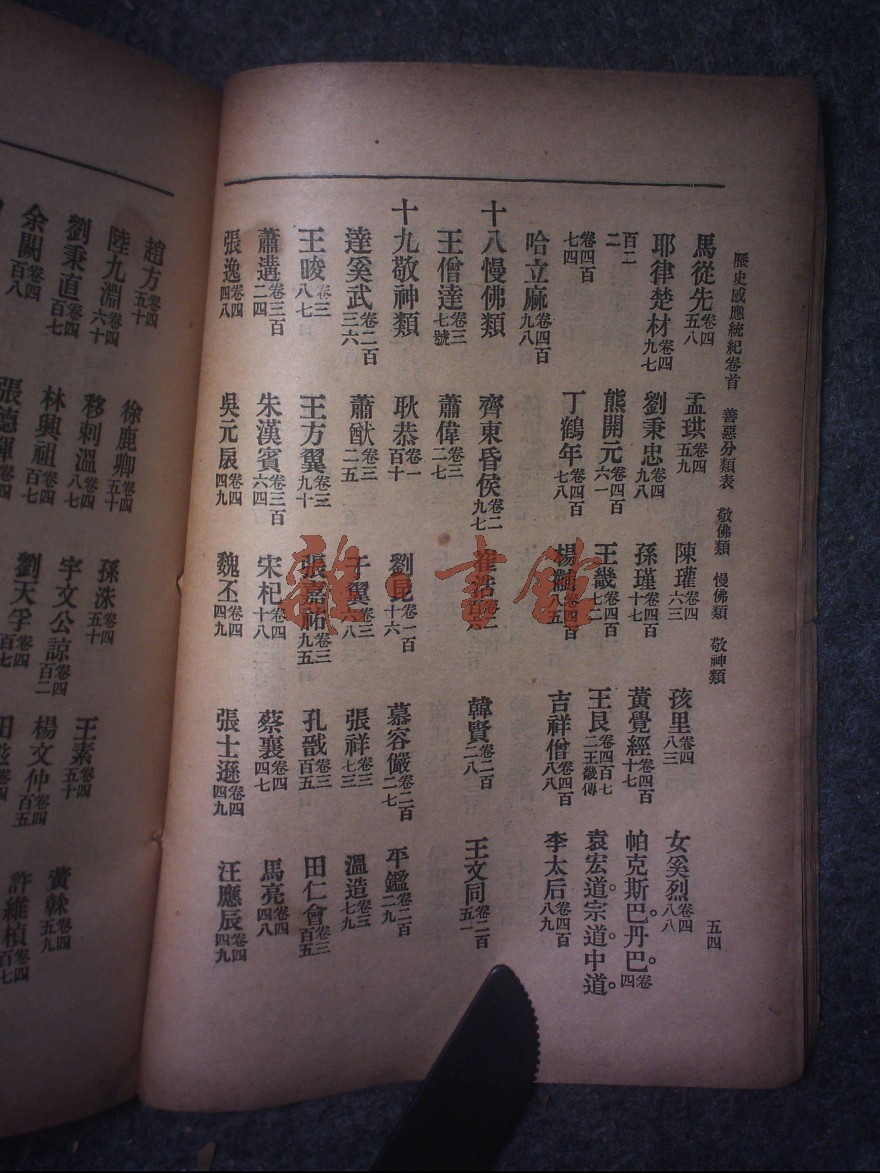 歷史感應統紀卷首 善惡分類表 敬佛類 慢佛類 敬神類 五四
馬從先卷四五八 孟珙卷四五九 陳瓘卷四六三 孩里卷四八三 女奚烈卷四八八
耶律楚材卷四九七 劉秉忠卷四九八 孫瑾卷四百十七 黃覺經卷四百十七 帕克斯巴。丹巴。卷四
百二 熊開元卷四百六一 王畿卷四百七二 王艮卷四百七二王畿傳 袁宏道。宗道。中道。
卷四百七四 丁鶴年卷四百七八 吉祥僧卷四百八八 李太后卷四百八九
哈立麻卷四百九八
十八慢佛類 齊東昏侯卷二九七 韓賢卷二百二八 王文同卷二百五一
王僧達卷三七號 蕭偉卷三二七
十九敬神類 耿恭卷一百十 劉昆卷一百十六 慕容儼卷二百二七 平鑑卷二百二九
達奚武卷二百三六 蕭猷卷三二五 張祥卷三七三 溫造卷三七九
王晙卷三八七 王方翼卷三九十 張嘉祐卷三九五 孔戣卷三百五 田仁會卷三百五
蕭遘卷三百二四 朱漢賓卷三百六四 宋杞卷四十八 蔡襄卷四四七 馬亮卷四四八
張逸卷四四八 吳元扆卷四四九 魏丕卷四四九 張士遜卷四四九 汪應辰卷四四九
趙方卷四五十 徐鹿卿卷四五十 孫洙卷四五十 王素卷四五十 黃榦卷四五九
陸九淵卷四六十 移剌溫卷四八七 宇文公諒卷四百二 楊文仲卷四百五 許維楨卷四百七
劉秉直卷四百七 林興祖卷四百七 劉天孚卷四百七
余闕卷四百八 張德輝卷四
雜·書館